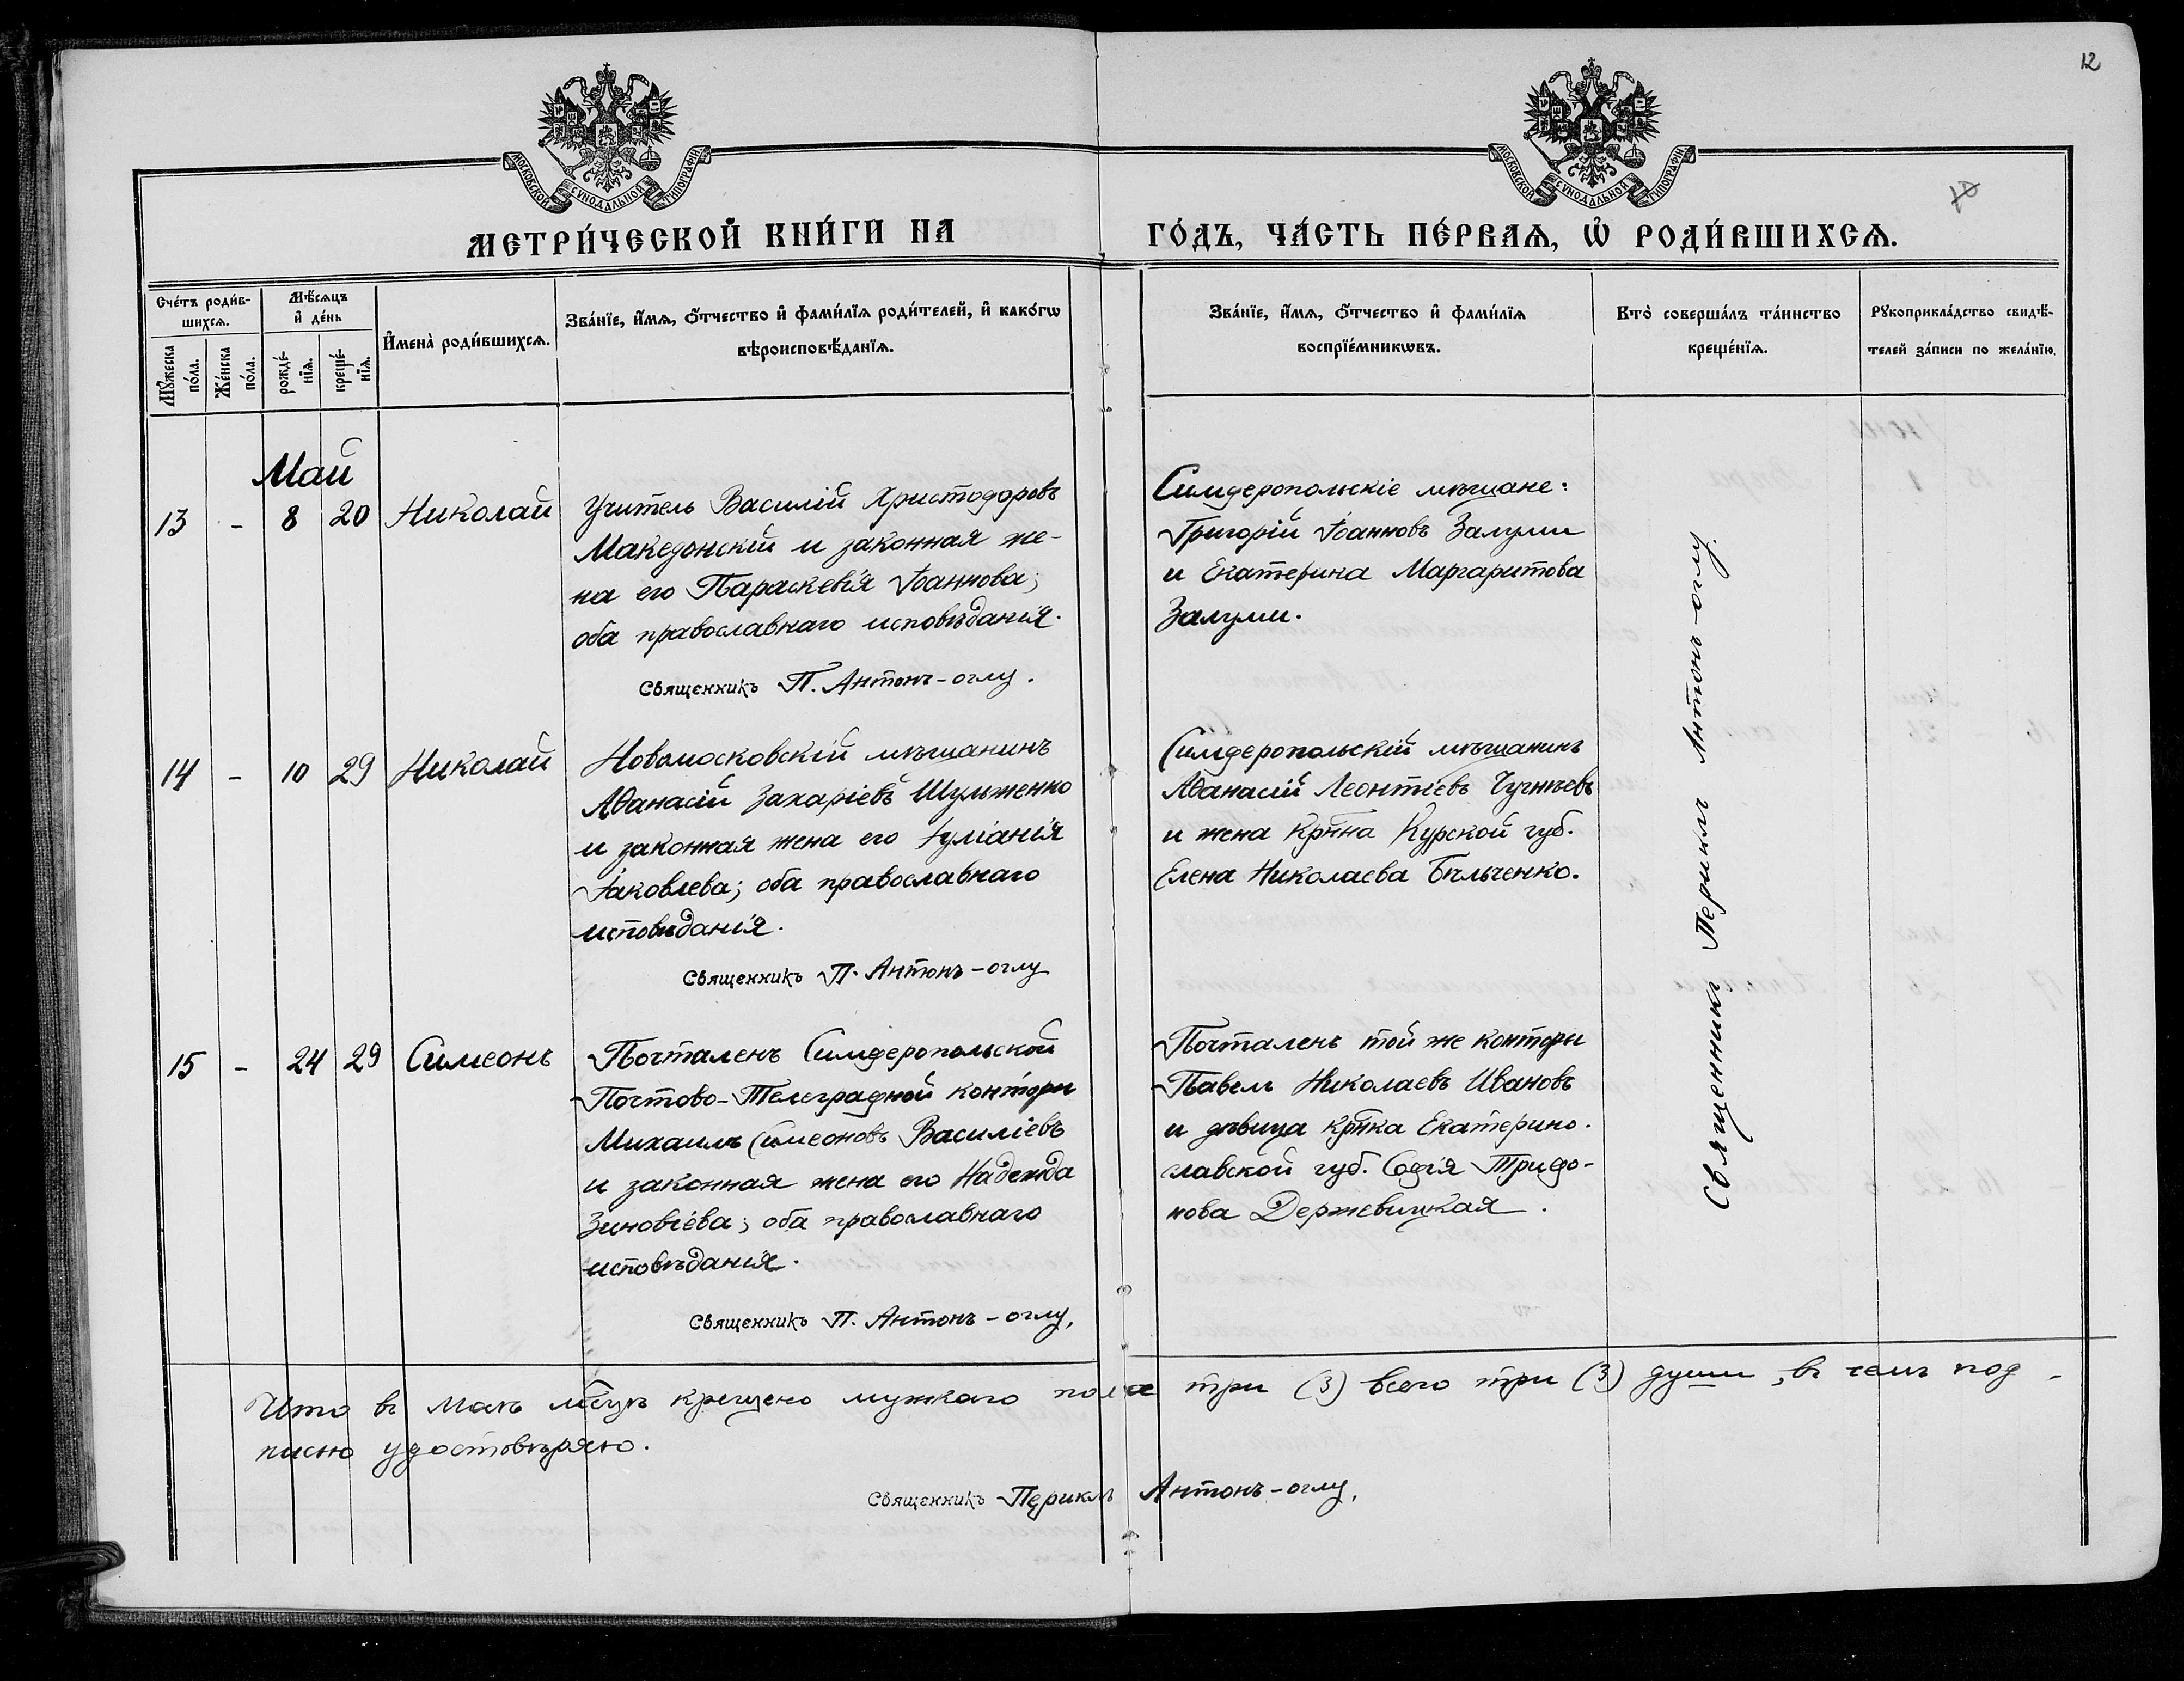 12
МОСКОВСКОЙ СѴНОДАЛЬНОЙ ТИПОГРАФІИ
МОСКОВСКОЙ СѴНОДАЛЬНОЙ ТИПОГРАФІИ
МЕТРИ́ЧЕСКОЙ КНИ́ГИ НА ГО́ДЪ, ЧА́СТЬ ПЕ́РВАѦ, Ѡ҆ РОДИ́ВШИХСѦ.
Счётъ роди́в-
шихсѧ.
Мꙋ́жеска
по́ла.
Же́нска
по́ла.
Мѣ́сѧцъ
и҆ де́нь
рожде́-
нїѧ.
креще́-
нїѧ.
И҆мена̀ роди́вшихсѧ.
Зва́нїе, и҆́мѧ, ѻ҆́тчество и҆ фами́лїѧ роди́телей, и҆ како́гѡ
вѣроисповѣ́данїѧ.
Зва́нїе, и҆́мѧ, ѻ҆́тчество и҆ фами́лїѧ
воспрїе́мникѡвъ.
Кто̀ соверша́лъ та́инство
креще́нїѧ.
Рꙋкоприкла́дство свидѣ́-
телей за́писи по жела́нїю.
Май
13 - 8 20 Николай
Учитель Василій Христодоровъ
Македонскій и законная же-
на его Параскевія Іоаннова;
оба православнаго исповѣданія.
Священникъ П. Антонъ-оглу.
Симферопольскіе мѣщане:
Григорій Іоанновъ Залуми
и Екатерина Маргаритова
Залуми.
14 - 10 29 Николай
Новомосковскій мѣщанинъ
Аѳанасій Захаріевъ Шульженко
и законная жена его Іуліанія
Іаковлева; оба православнаго
исповѣданія.
Священникъ П. Антонъ-оглу
Симферопольскій мѣщанинъ
Аѳанасій Леонтіевъ
и жена кр̃нна Курской губ.
Елена Николаева Бѣльченко.
15 - 24 29 Симеонъ
Почталенъ Симферопольской
Почтово-Телеграфной конторы
Михаилъ Симеоновъ Василіевъ
и законная жена его Надежда
Зиновіева; оба православнаго
исповѣданія.
Священникъ П. Антонъ-оглу,
Почталенъ той же конторы
Павелъ Николаевъ Ивановъ
и дѣвица кр̃нка Екатерино-
славской губ. Софія Трифо-
нова Держевицкая.
Священникъ Периклъ Антонъ-оглу.
Что въ маѣ мѣцѣ крещено мужкаго пола три (3) всего три (3) души, въ чемъ под-
писью удостовѣряю.
Священникъ Периклъ Антонъ-оглу,